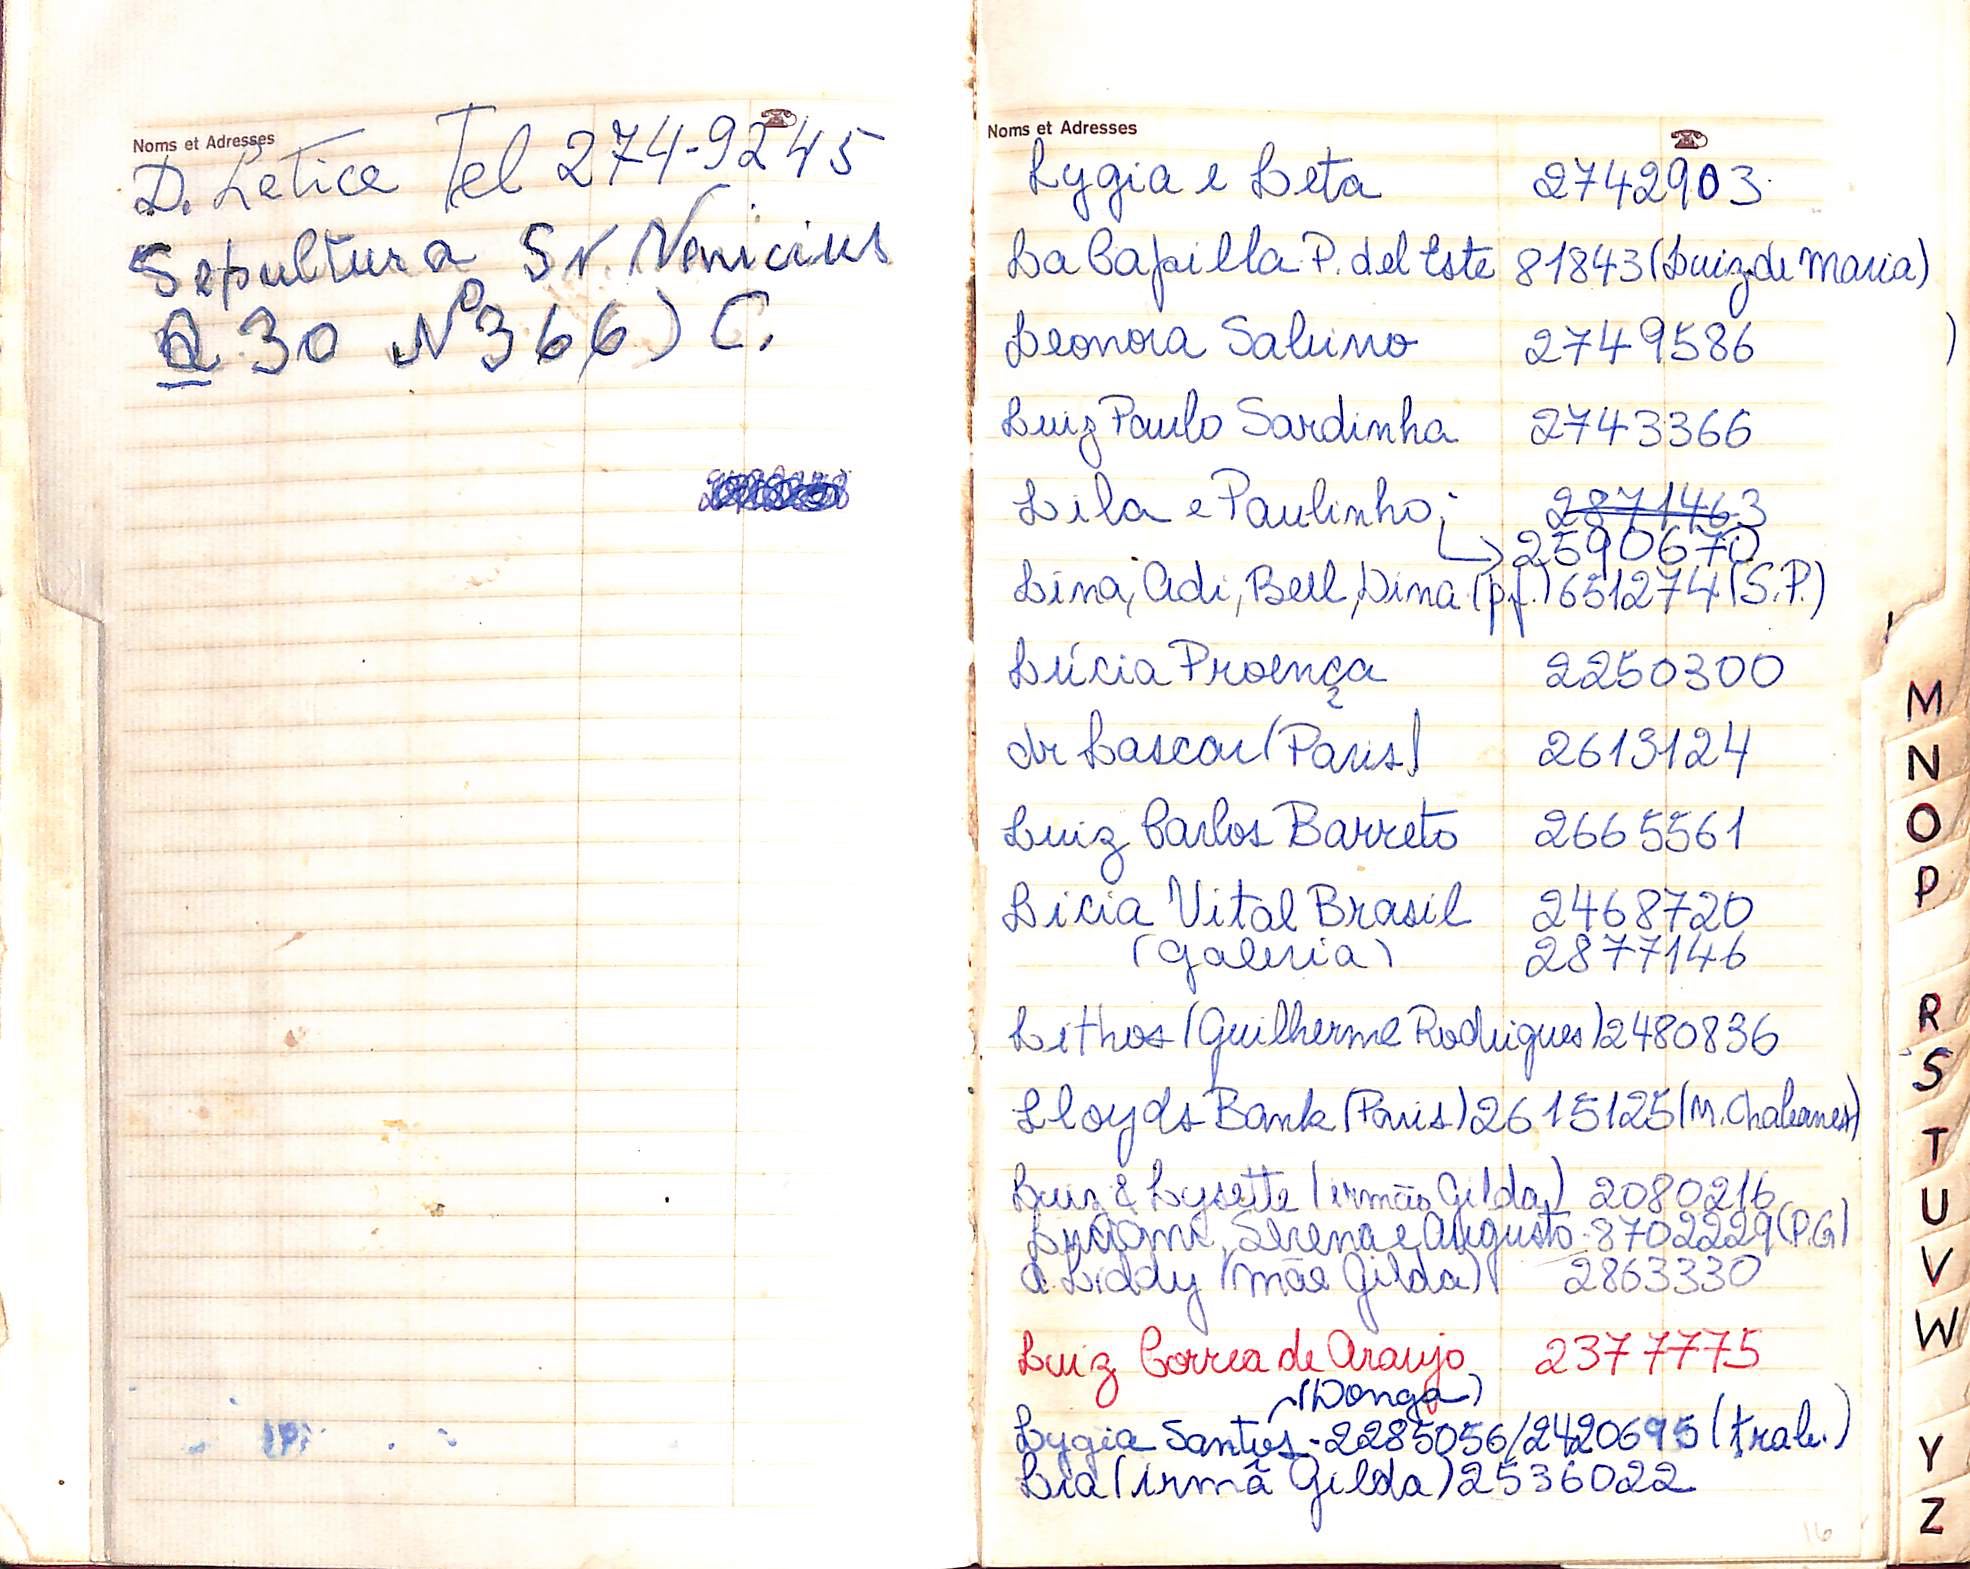 Noms et Adresses
D. Letice Tel 274-9245
Sepultura Sr. Venicius
Q 30 Nº 366) C.
Noms et Adresses
Lygia e Beta 2742903
La Capilla P. del Este 81843 (Luiz de Maria)
Leonora Sabino 2749586
)
Luiz Paulo Sardinha 2743366
Lila e Paulinho 2871463
2590670
Lina, Adi, Bell, Dina (p.f.) 651274 (S.P.)
Lúcia Proença 2250300
dr Lascar (Paris) 2613124
Luiz Carlos Barreto 2665561
Licia Vital Brasil 2468720
(Galeria) 2877146
Lithos (Guilherme Rodrigues) 2480836
Lloyds Bank (Paris) 2615125 (M.
Luiz & Lysette (irmão Gilda) 2080216
Serena e Augusto - 8702229 (P.G)
d. Liddy (mãe Gilda) 2863330
Luiz Correa de Araujo 2377775
(Donga)
Lygia Santos - 2285056/2420695 (trab.)
Lia (irmã Gilda) 2536022
16
M
N
O
P
R
S
T
U
V
W
Y
Z